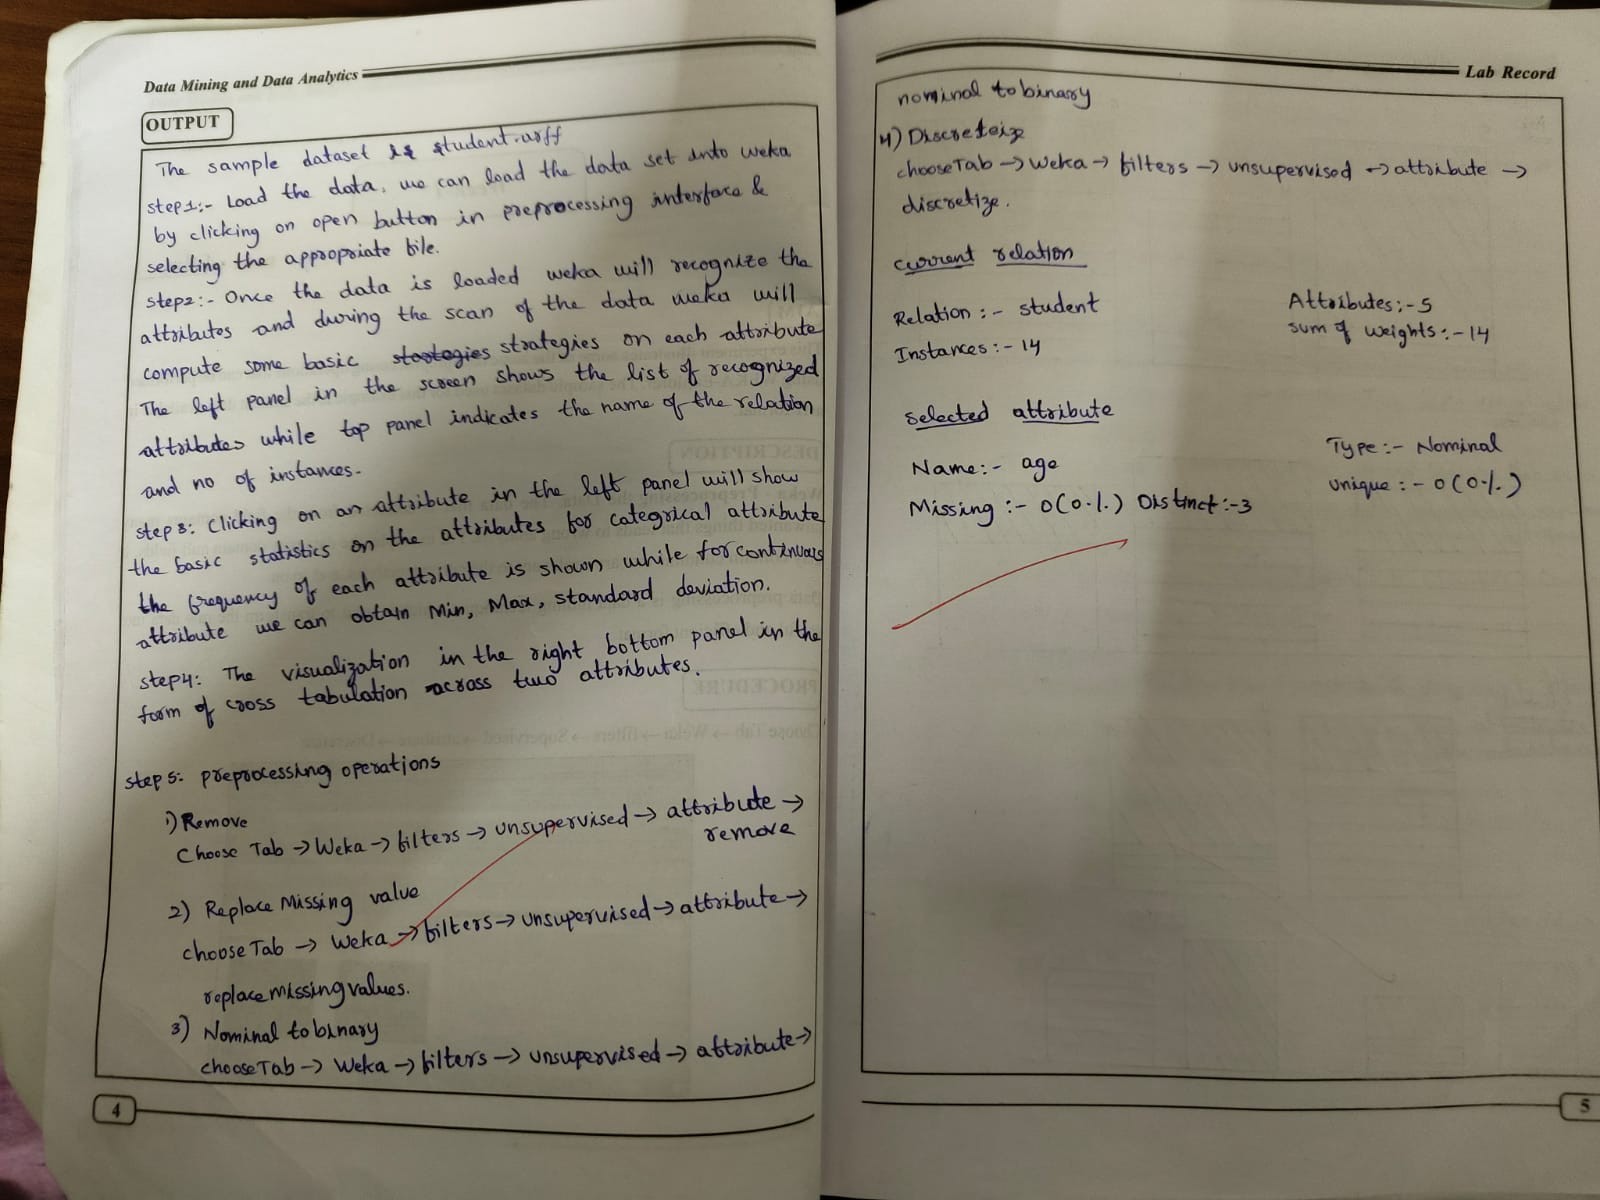 Data Mining and Data Analytics
OUTPUT
The sample dataset is student.arff
step1:- Load the data. we can load the data set into weka
by clicking on open button in preprocessing interface &
selecting the appropriate file.
step2:- Once the data is loaded weka will recognize the
attributes and during the scan of the data weka will
compute some basic strategies on each attribute
The left panel in the screen shows the list of recognized
attributes while top panel indicates the name of the relation
and no of instances.
step 3: Clicking on an attribute in the left panel will show
the basic statistics on the attributes for categrical attribute
the frequency of each attribute is shown while for continuous
attribute we can obtain Min, Max, standard deviation.
step4: The visualization in the right bottom panel in the
form of cross tabulation across two attributes.
step 5: preprocessing operations
1) Remove
Choose Tab → Weka → filters → unsupervised → attribute →
remove
2) Replace Missing value
choose Tab → Weka → filters → unsupervised → attribute →
replace missing values.
3) Nominal to binary
choose Tab → Weka → filters → unsupervised → attribute →
4
Lab Record
nominal to binary
4) Discreteize
choose Tab → Weka → filters → unsupervised → attribute →
discretize.
current relation
Relation :- student Attributes:-5
Instances:-14 sum of weights:-14
selected attribute
Name:- age Type:- Nominal
Missing :- 0(0%) Distinct:-3 unique :- 0(0%)
5